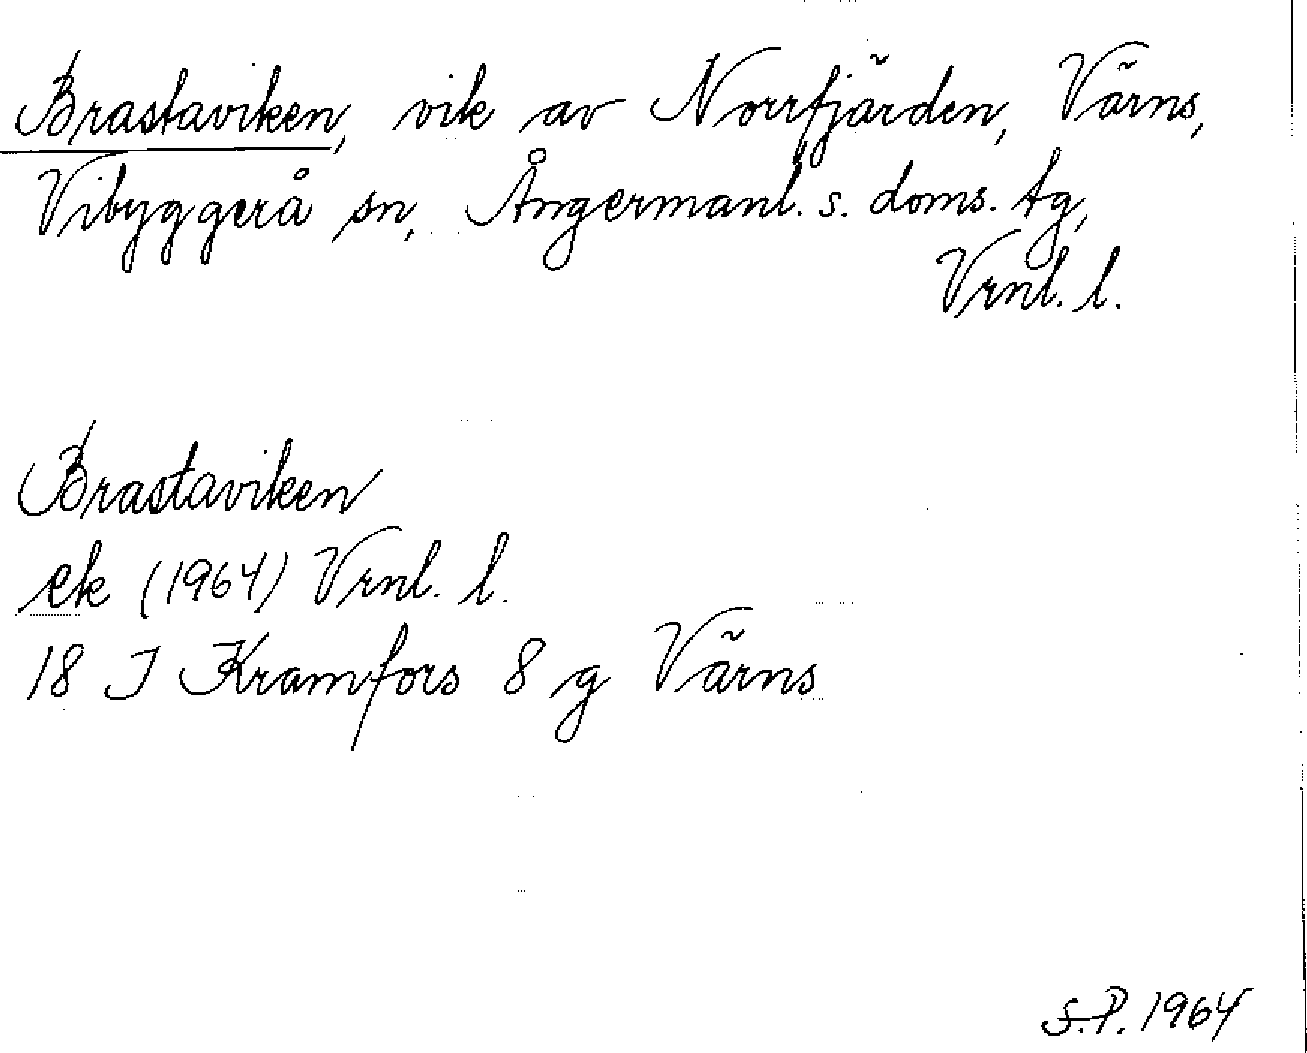 Brastaviken, vik av Norrfjärden, Värns,
Vibyggerå sn, Ångermanl. s. doms. tg,
Vrnl. l.
Brastaviken
ek (1964) Vrnl. l.
18 J Kramfors 8 g Värns
S.P. 1964